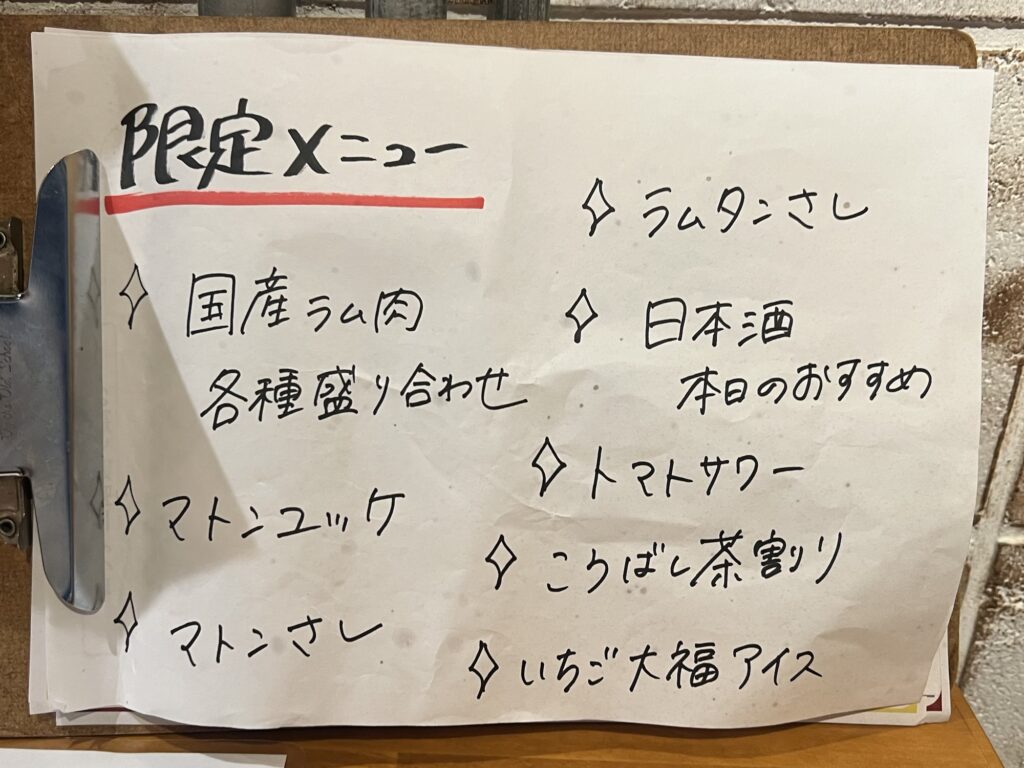 限定メニュー
国産ラム肉
各種盛り合わせ
マトンユッケ
マトンさし
ラムタンさし
日本酒
本日のおすすめ
トマトサワー
こうばし茶割り
いちご大福アイス